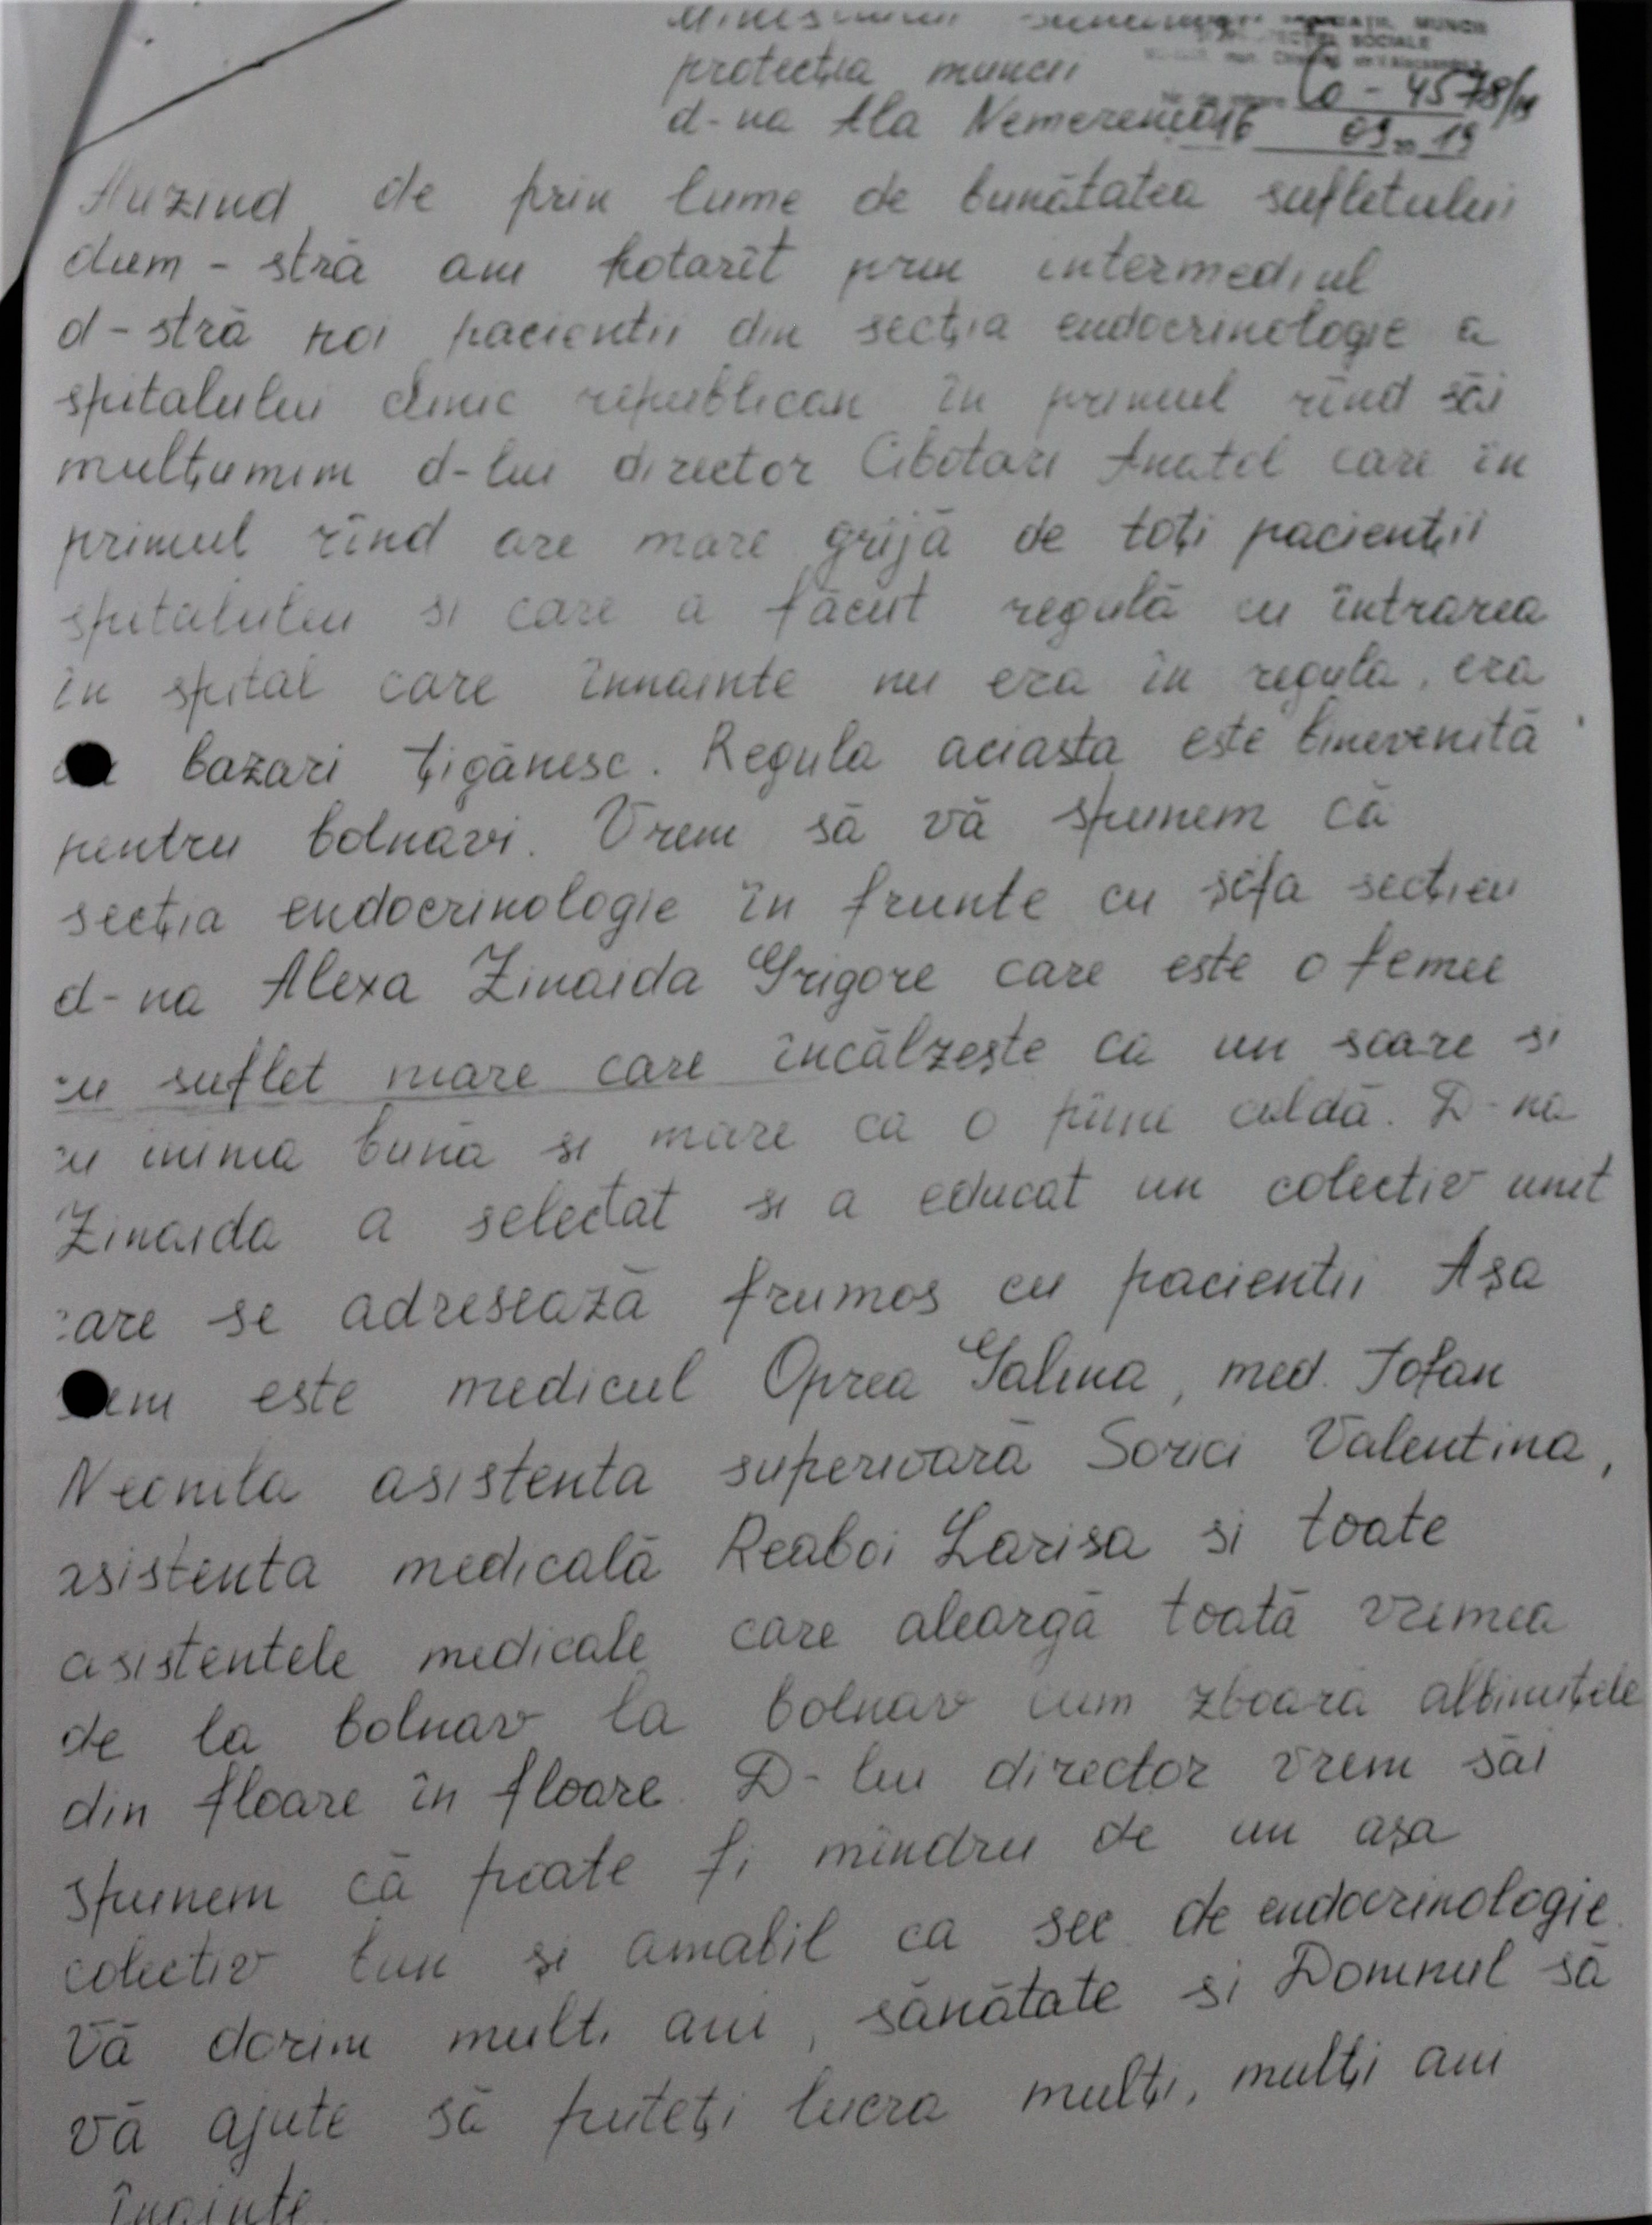 protecția muncii
MUNCII
SOCIALE
d-na Ala Nemerencu
Co - 4578/19
16 09 20 19
Auzind de prin lume de bunătatea sufletului
dum - stră am hotarît prin intermediul
d-stră noi pacientii din secția endocrinologie a
spitalului clinic republican în primul rînd săi
mulțumim d-lui director Cibotari Anatol care în
primul rînd are mare grijă de toți pacienții
spitalului si care a făcut regulă cu întrarea
în spital care înnainte nu era în regula, era
bazari țigănesc. Regula aciasta este binevenită
pentru bolnavi. Vrem să vă spunem că
secția endocrinologie în frunte cu șefa secției
d-na Alexa Zinaida Grigore care este o femee
cu suflet mare care încălzește ca un soare si
cu inima bună si mare ca o pîine caldă. D-na
Zinaida a selectat si a educat un colectiv unit
care se adresează frumos cu pacientii Așa
este medicul Oprea Galina, med. Tofan
Neonila asistenta superioară Sorici Valentina,
asistenta medicală Reaboi Larisa si toate
asistentele medicale care aleargă toată vremea
de la bolnav la bolnav cum zboară albinuțele
din floare în floare. D-lui director vrem săi
spunem că poate fi mîndru de un așa
colectiv bun și amabil ca sec. de endocrinologie.
Vă dorim multi ani, sănătate si Domnul să
vă ajute să puteți lucra mulți, mulți ani
înainte.